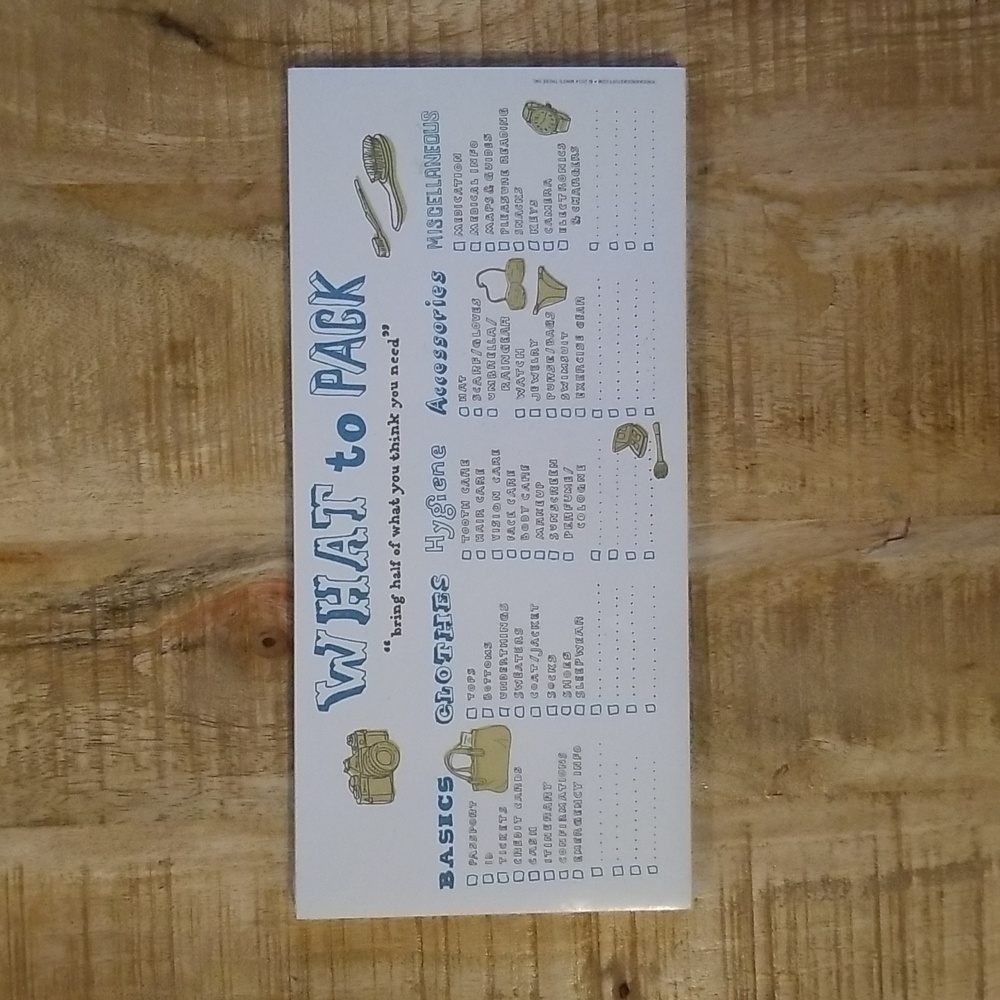 WHAT to PACK
“bring half of what you think you need”
BASICS
PASSPORT
ID
TICKETS
CREDIT CARDS
CASH
ITINERARY
CONFIRMATIONS
EMERGENCY INFO
CLOTHES
TOPS
BOTTOMS
UNDERTHINGS
SWEATERS
COAT/JACKET
SOCKS
SHOES
SLEEPWEAR
Hygiene
TOOTH CARE
HAIR CARE
VISION CARE
FACE CARE
BODY CARE
MAKEUP
SUNSCREEN
PERFUME/
COLOGNE
Accessories
HAT
SCARF/GLOVES
UMBRELLA/
RAINGEAR
WATCH
JEWELRY
PURSE/BAGS
SWIMSUIT
EXERCISE GEAR
MISCELLANEOUS
MEDICATION
MEDICAL INFO
MAPS & GUIDES
PLEASURE READING
SNACKS
KEYS
CAMERA
ELECTRONICS
& CHARGERS